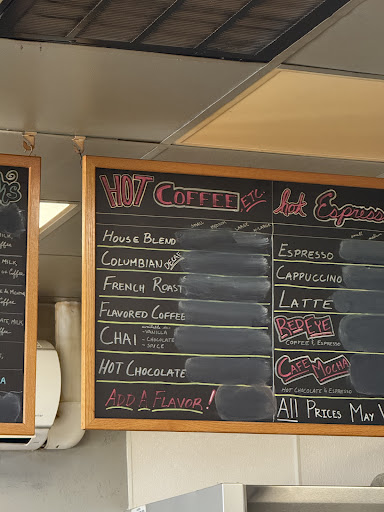 HOT COFFEE ETC.
SMALL MEDIUM LARGE X-LARGE
HOUSE BLEND
COLUMBIAN DECAF
FRENCH ROAST
FLAVORED COFFEE
CHAI
available in
- VANILLA
- CHOCOLATE
- SPICE
HOT CHOCOLATE
ADD A FLAVOR!
hot Espresso
ESPRESSO
CAPPUCCINO
LATTE
RED EYE
COFFEE & ESPRESSO
CAFE MOCHA
HOT CHOCOLATE & ESPRESSO
ALL PRICES MAY
MILK,
coffee
MILK
coffee
MILK
coffee